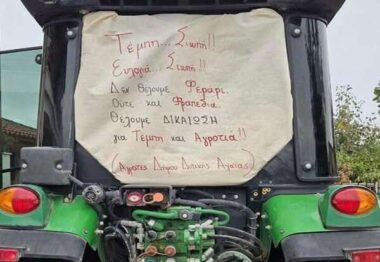 Τέμπη... Σιωπή!!
Ευλογιά... Σιωπή!!
Δεν θέλουμε Φεράρι.
Ούτε και Φραπέδια.
Θέλουμε ΔΙΚΑΙΩΣΗ
για Τέμπη και Αγροτιά!!
(Αγρότες Δήμου Δυτικής Αχαΐας)